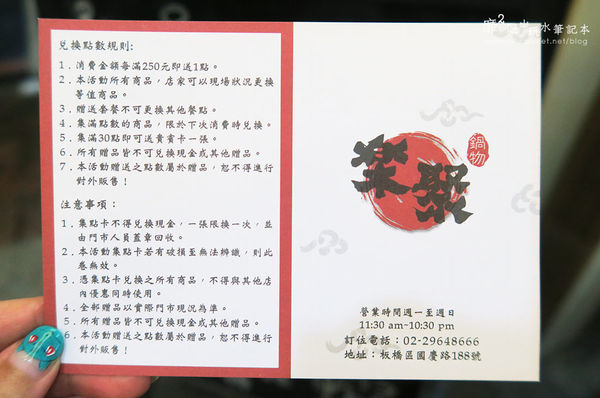 兌換點數規則:
1．消費金額每滿250元即送1點。
2．本活動所有商品，店家可以現場狀況更換
等值商品。
3．贈送套餐不可更換其他餐點。
4．集滿點數的商品，限於下次消費時兌換。
5．集滿30點即可送貴賓卡一張。
6．所有贈品皆不可兌換現金或其他贈品。
7．本活動贈送之點數屬於贈品，恕不得進行
對外販售！
注意事項：
1．集點卡不得兌換現金，一張限換一次，並
由門市人員蓋章回收。
2．本活動集點卡若有破損至無法辨識，則此
卷無效。
3．憑集點卡兌換之所有商品，不得與其他店
內優惠同時使用。
4．全部贈品以實際門市現況為準。
5．所有贈品皆不可兌換現金或其他贈品。
6．本活動贈送之點數屬於贈品，恕不得進行
對外販售！
聚
鍋物
營業時間週一至週日
11:30 am~10:30 pm
訂位電話：02-29648666
地址：板橋區國慶路188號
水筆記本
.net/blog